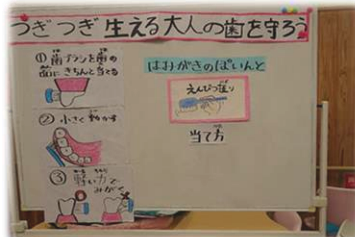 つぎつぎ生える大人の歯を守ろう
① 歯ブラシを歯の
歯にきちんと当てる
② 小さく動かす
③ 軽い力で
みがく
はみがきのぽいんと
えんぴつ握り
当て方